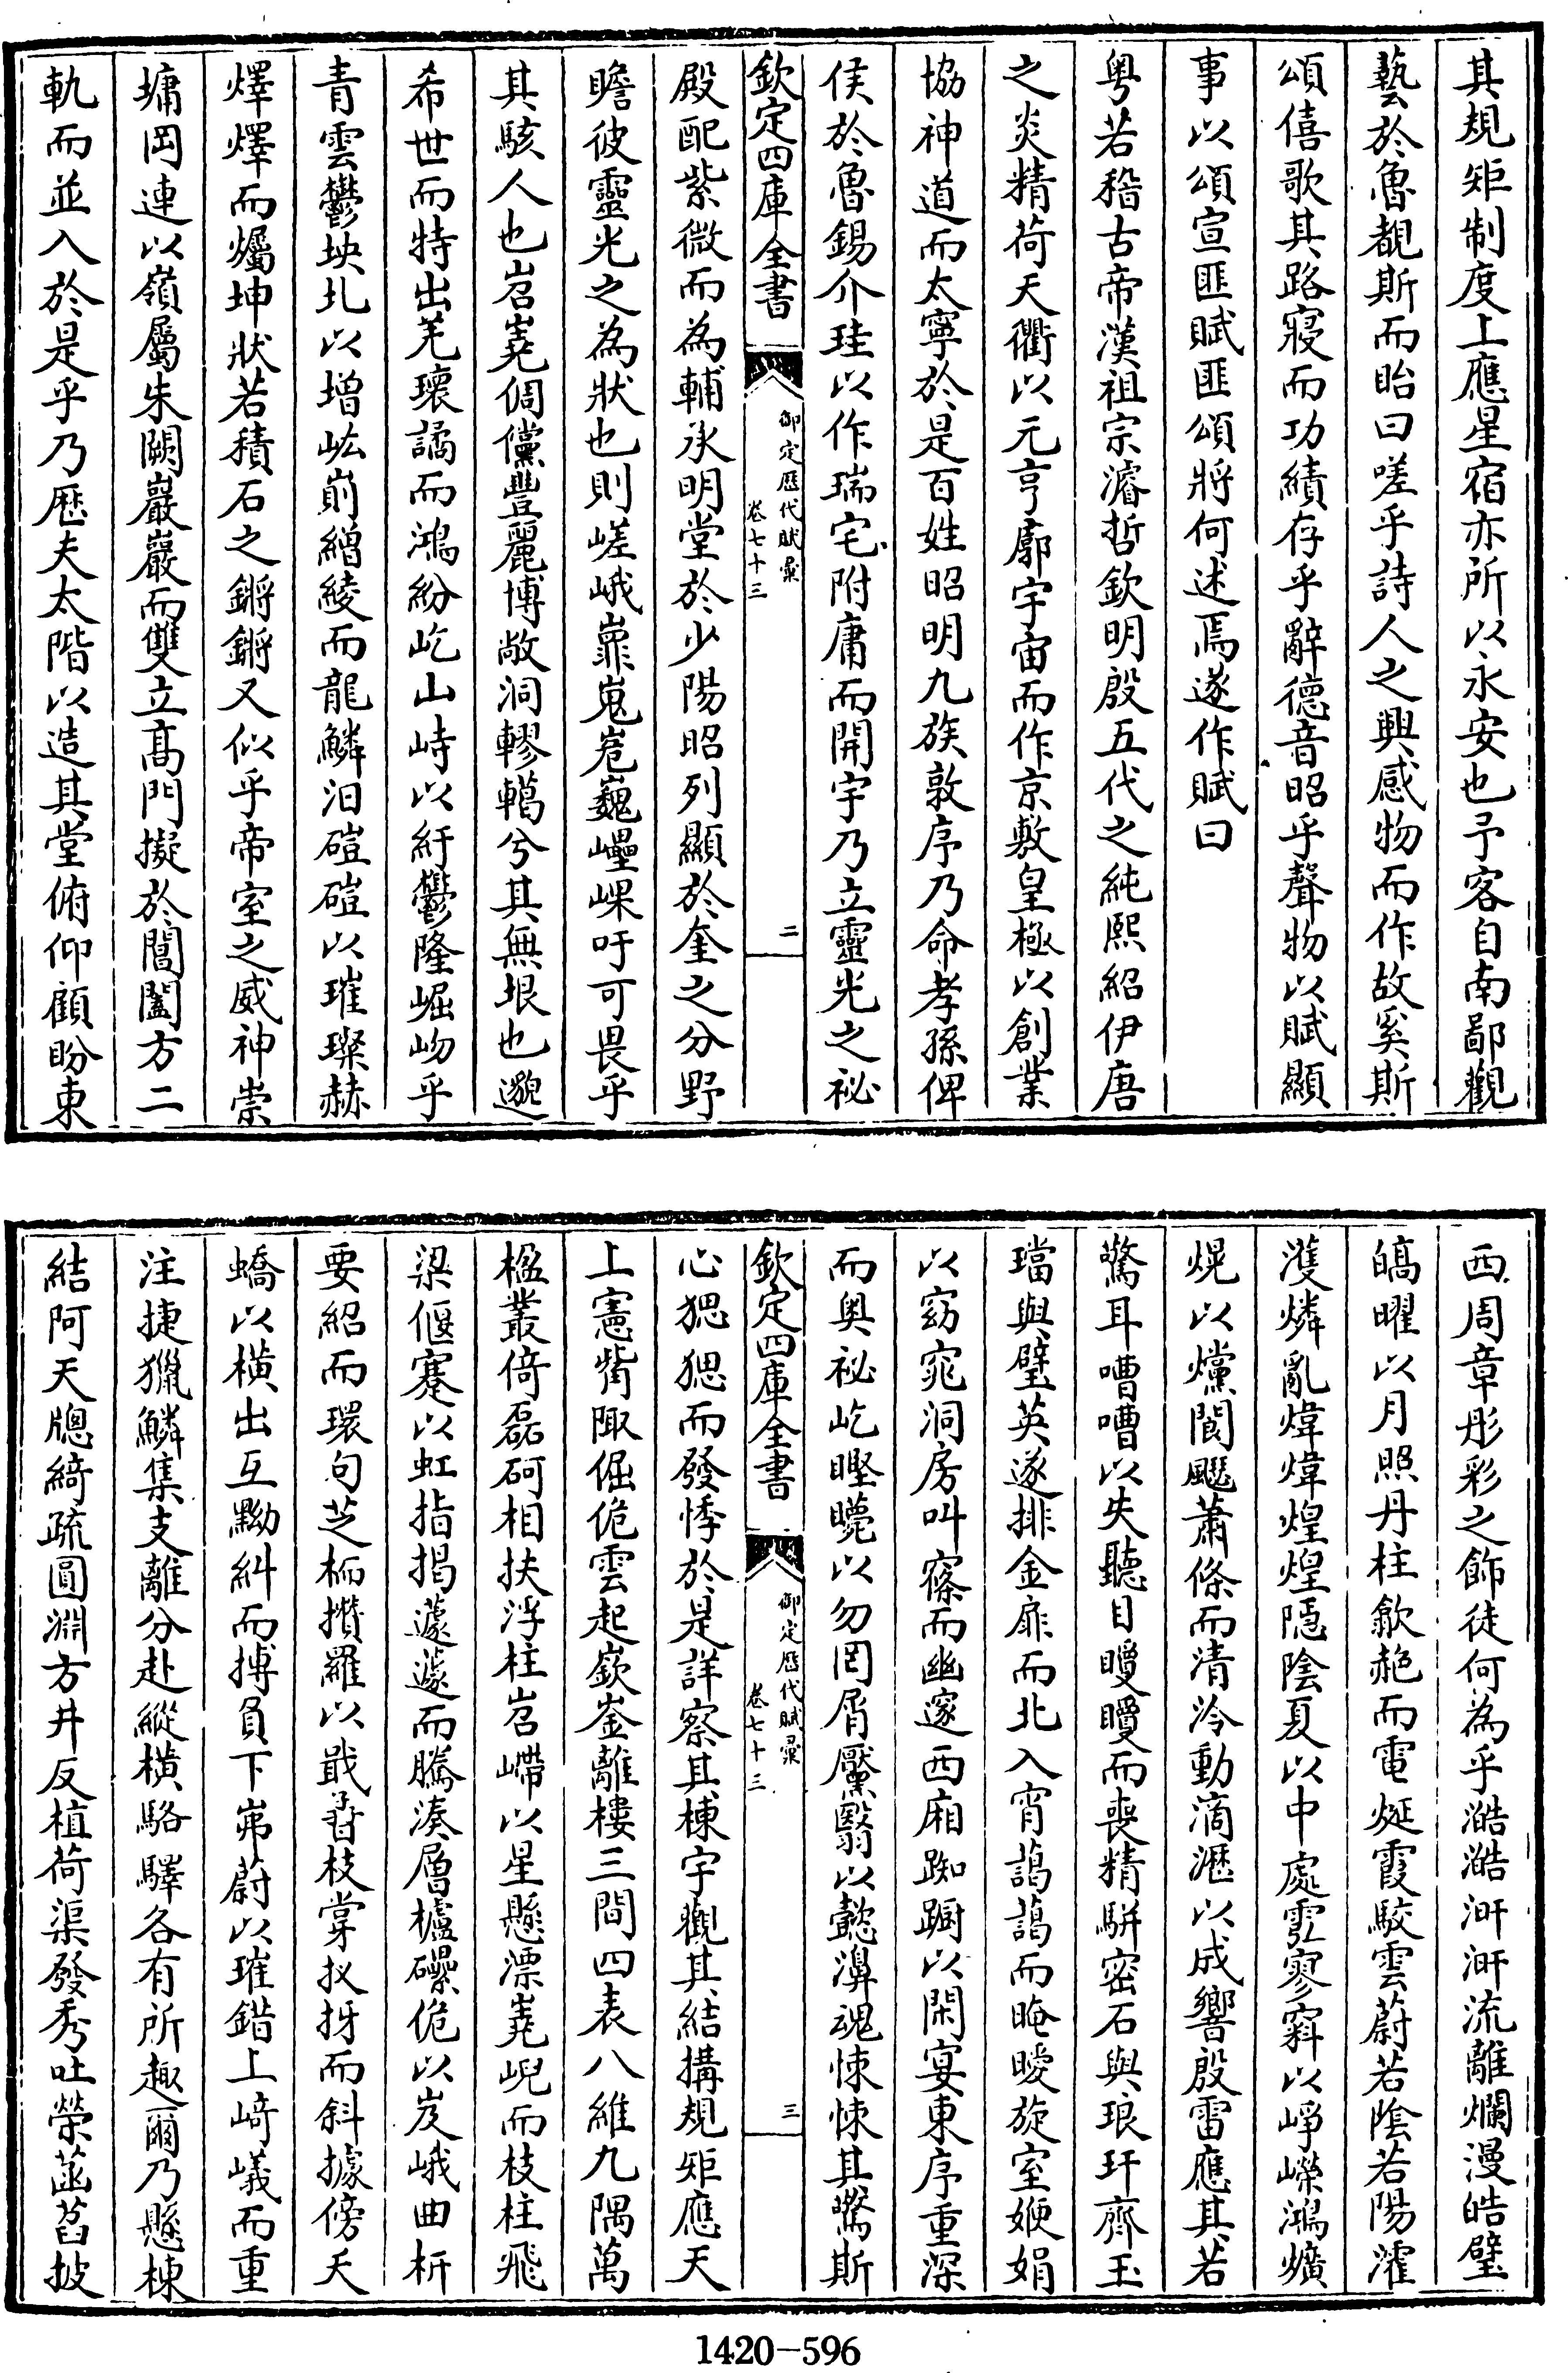 其規矩制度上應星宿亦所以永安也予客自南鄙觀
藝於魯覩斯而眙曰嗟乎詩人之興感物而作故奚斯
頌僖歌其路寢而功績存乎辭德音昭乎聲物以賦顯
事以頌宣匪賦匪頌將何述焉遂作賦曰
粤若稽古帝漢祖宗濬哲欽明殷五代之純熙紹伊唐
之炎精荷天衢以元亨廓宇宙而作京敷皇極以創業
協神道而太寧於是百姓昭明九族敦序乃命孝孫俾
侯於魯錫介珪以作瑞宅附庸而開宇乃立靈光之祕
欽定四庫全書
御定歴代賦彙
卷七十三
二
殿配紫微而為輔承明堂於少陽昭列顯於奎之分野
瞻彼靈光之為狀也則嵯峨嶵嵬峞巍㠥嵲吁可畏乎
其駭人也岧嶤倜儻豐麗博敞洞轇轕兮其無垠也邈
希世而特出羌瓌譎而鴻紛屹山峙以紆鬱隆崛岉乎
青雲鬱坱圠以増㟅崱繒綾而龍鱗汩磑磑以璀璨赫
燡燡而爥坤狀若積石之鏘鏘又似乎帝室之威神崇
墉岡連以嶺屬朱闕巖巖而雙立髙門擬於閶闔方二
軌而並入於是乎乃歴夫太階以造其堂俯仰顧盼東
西周章彤彩之飾徒何為乎澔澔涆涆流離爛漫皓壁
皜曜以月照丹柱歙赩而電烻霞駮雲蔚若陰若陽瀖
濩燐亂煒煒煌煌隱陰夏以中處霐寥窲以崢嶸鴻爌
熀以爣閬飋蕭條而清泠動滴瀝以成響殷雷應其若
驚耳嘈嘈以失聽目矎矎而喪精駢密石與琅玕齊玉
璫與璧英遂排金扉而北入宵藹藹而晻曖旋室㛹娟
以窈窕洞房叫窱而幽邃西廂踟躕以閑宴東序重深
而奥祕屹㗴瞢以勿罔屑黶翳以懿濞魂悚悚其驚斯
欽定四庫全書
御定歴代賦彙
卷七十三
三
心猲猲而發悸於是詳察其棟宇觀其結搆規矩應天
上憲觜陬倔佹雲起嶔崟離樓三間四表八維九隅萬
楹叢倚磊砢相扶浮柱岧嵽以星懸漂嶤峴而枝柱飛
梁偃蹇以虹指揭蘧蘧而騰湊層櫨磥佹以岌峨曲枅
要紹而環句芝栭攢羅以戢孴枝牚杈枒而斜據傍夭
蟜以橫出互黝糾而搏負下岪蔚以璀錯上崎嶬而重
注捷獵鱗集支離分赴縱橫駱驛各有所趣爾乃懸棟
結阿天牕綺疏圓淵方井反植荷渠發秀吐榮菡萏披
1420-596